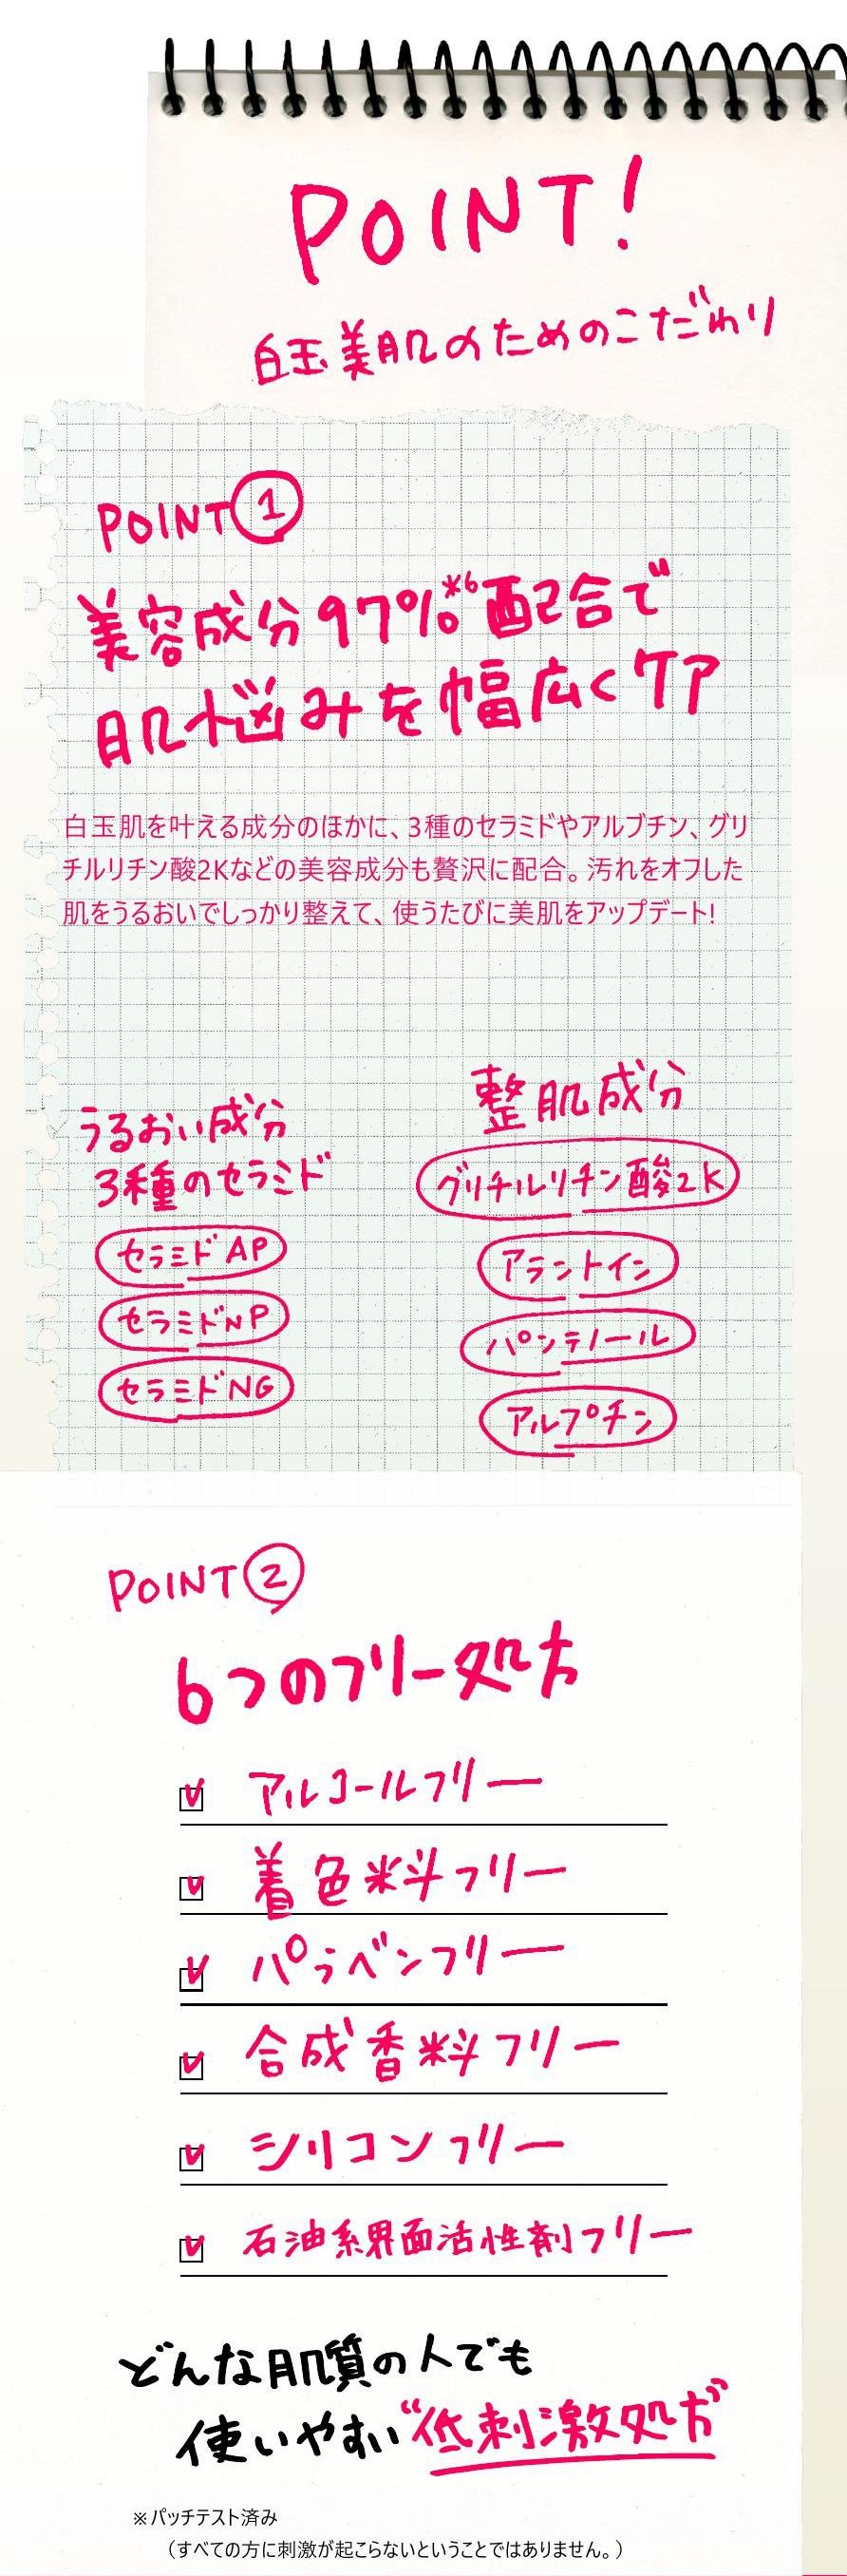 POINT!
白玉美肌のためのこだわり
POINT①
美容成分97%*6配合で
肌悩みを幅広くケア
白玉肌を叶える成分のほかに、3種のセラミドやアルブチン、グリ
チルリチン酸2Kなどの美容成分も贅沢に配合。汚れをオフした
肌をうるおいでしっかり整えて、使うたびに美肌をアップデート!
うるおい成分
3種のセラミド
セラミドAP
セラミドNP
セラミドNG
整肌成分
グリチルリチン酸2K
アラントイン
パンテノール
アルプチン
POINT②
6つのフリー処方
アルコールフリー
着色料フリー
パラベンフリー
合成香料フリー
シリコンフリー
石油系界面活性剤フリー
どんな肌質の人でも
使いやすい“低刺激処方”
※パッチテスト済み
(すべての方に刺激が起こらないということではありません。)